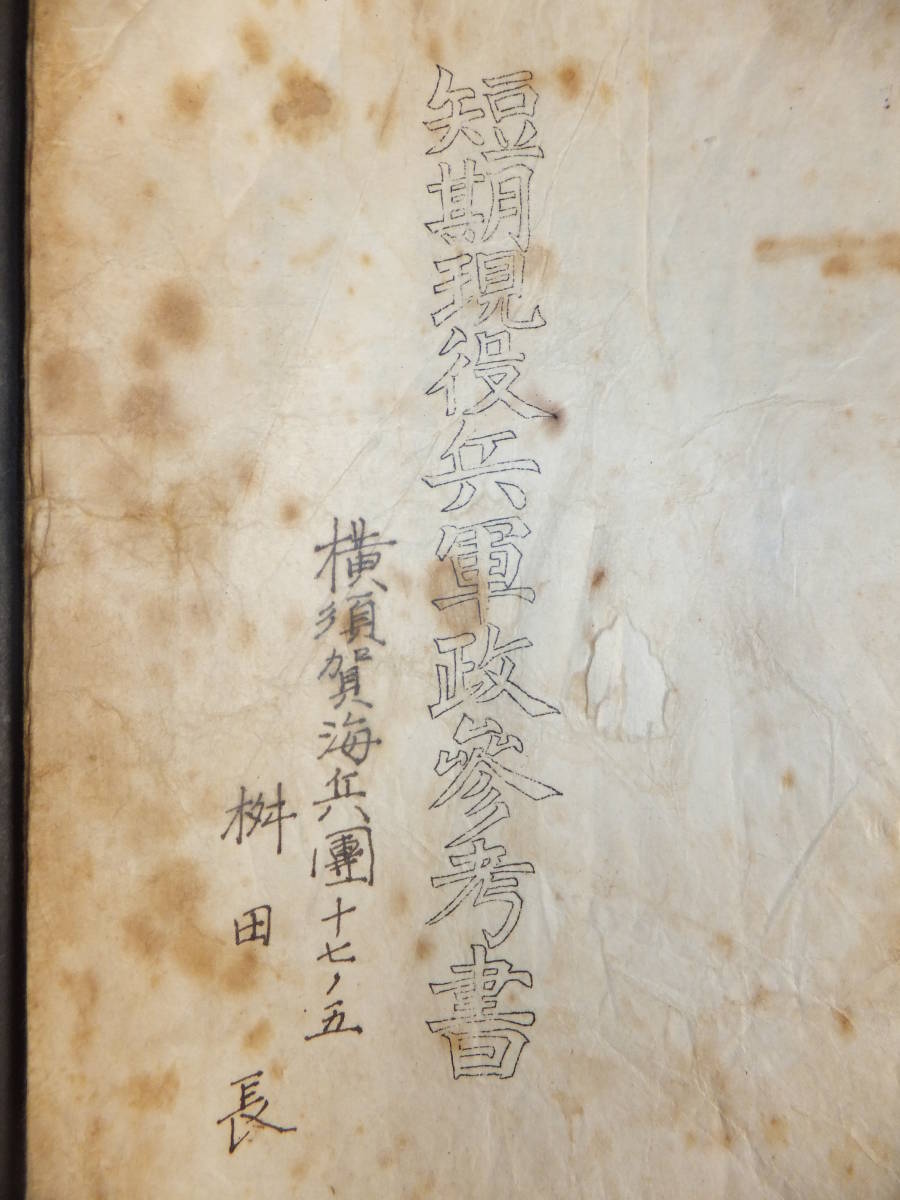 短期現役兵軍政參考書
横須賀海兵團十七ノ五
桝田長